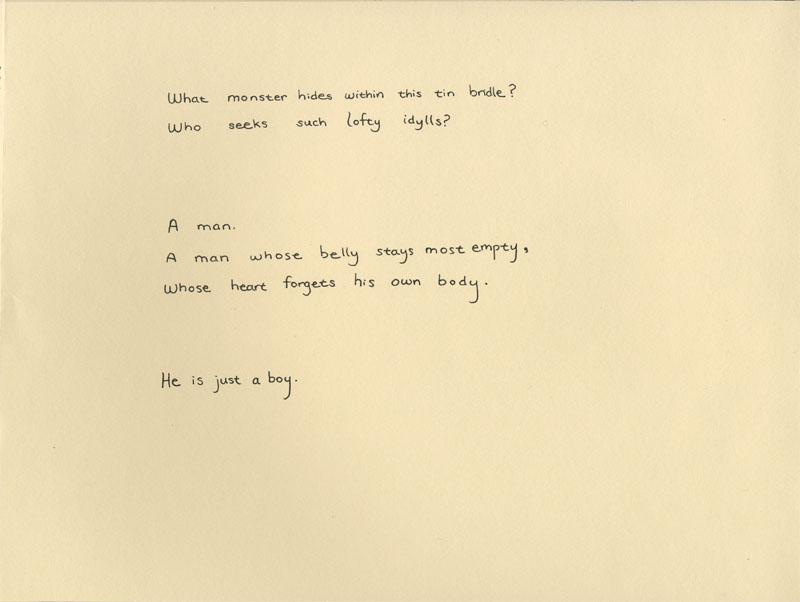 What monster hides within this tin bridle?
Who seeks such lofty idylls?
A man.
A man whose belly stays most empty,
Whose heart forgets his own body.
He is just a boy.